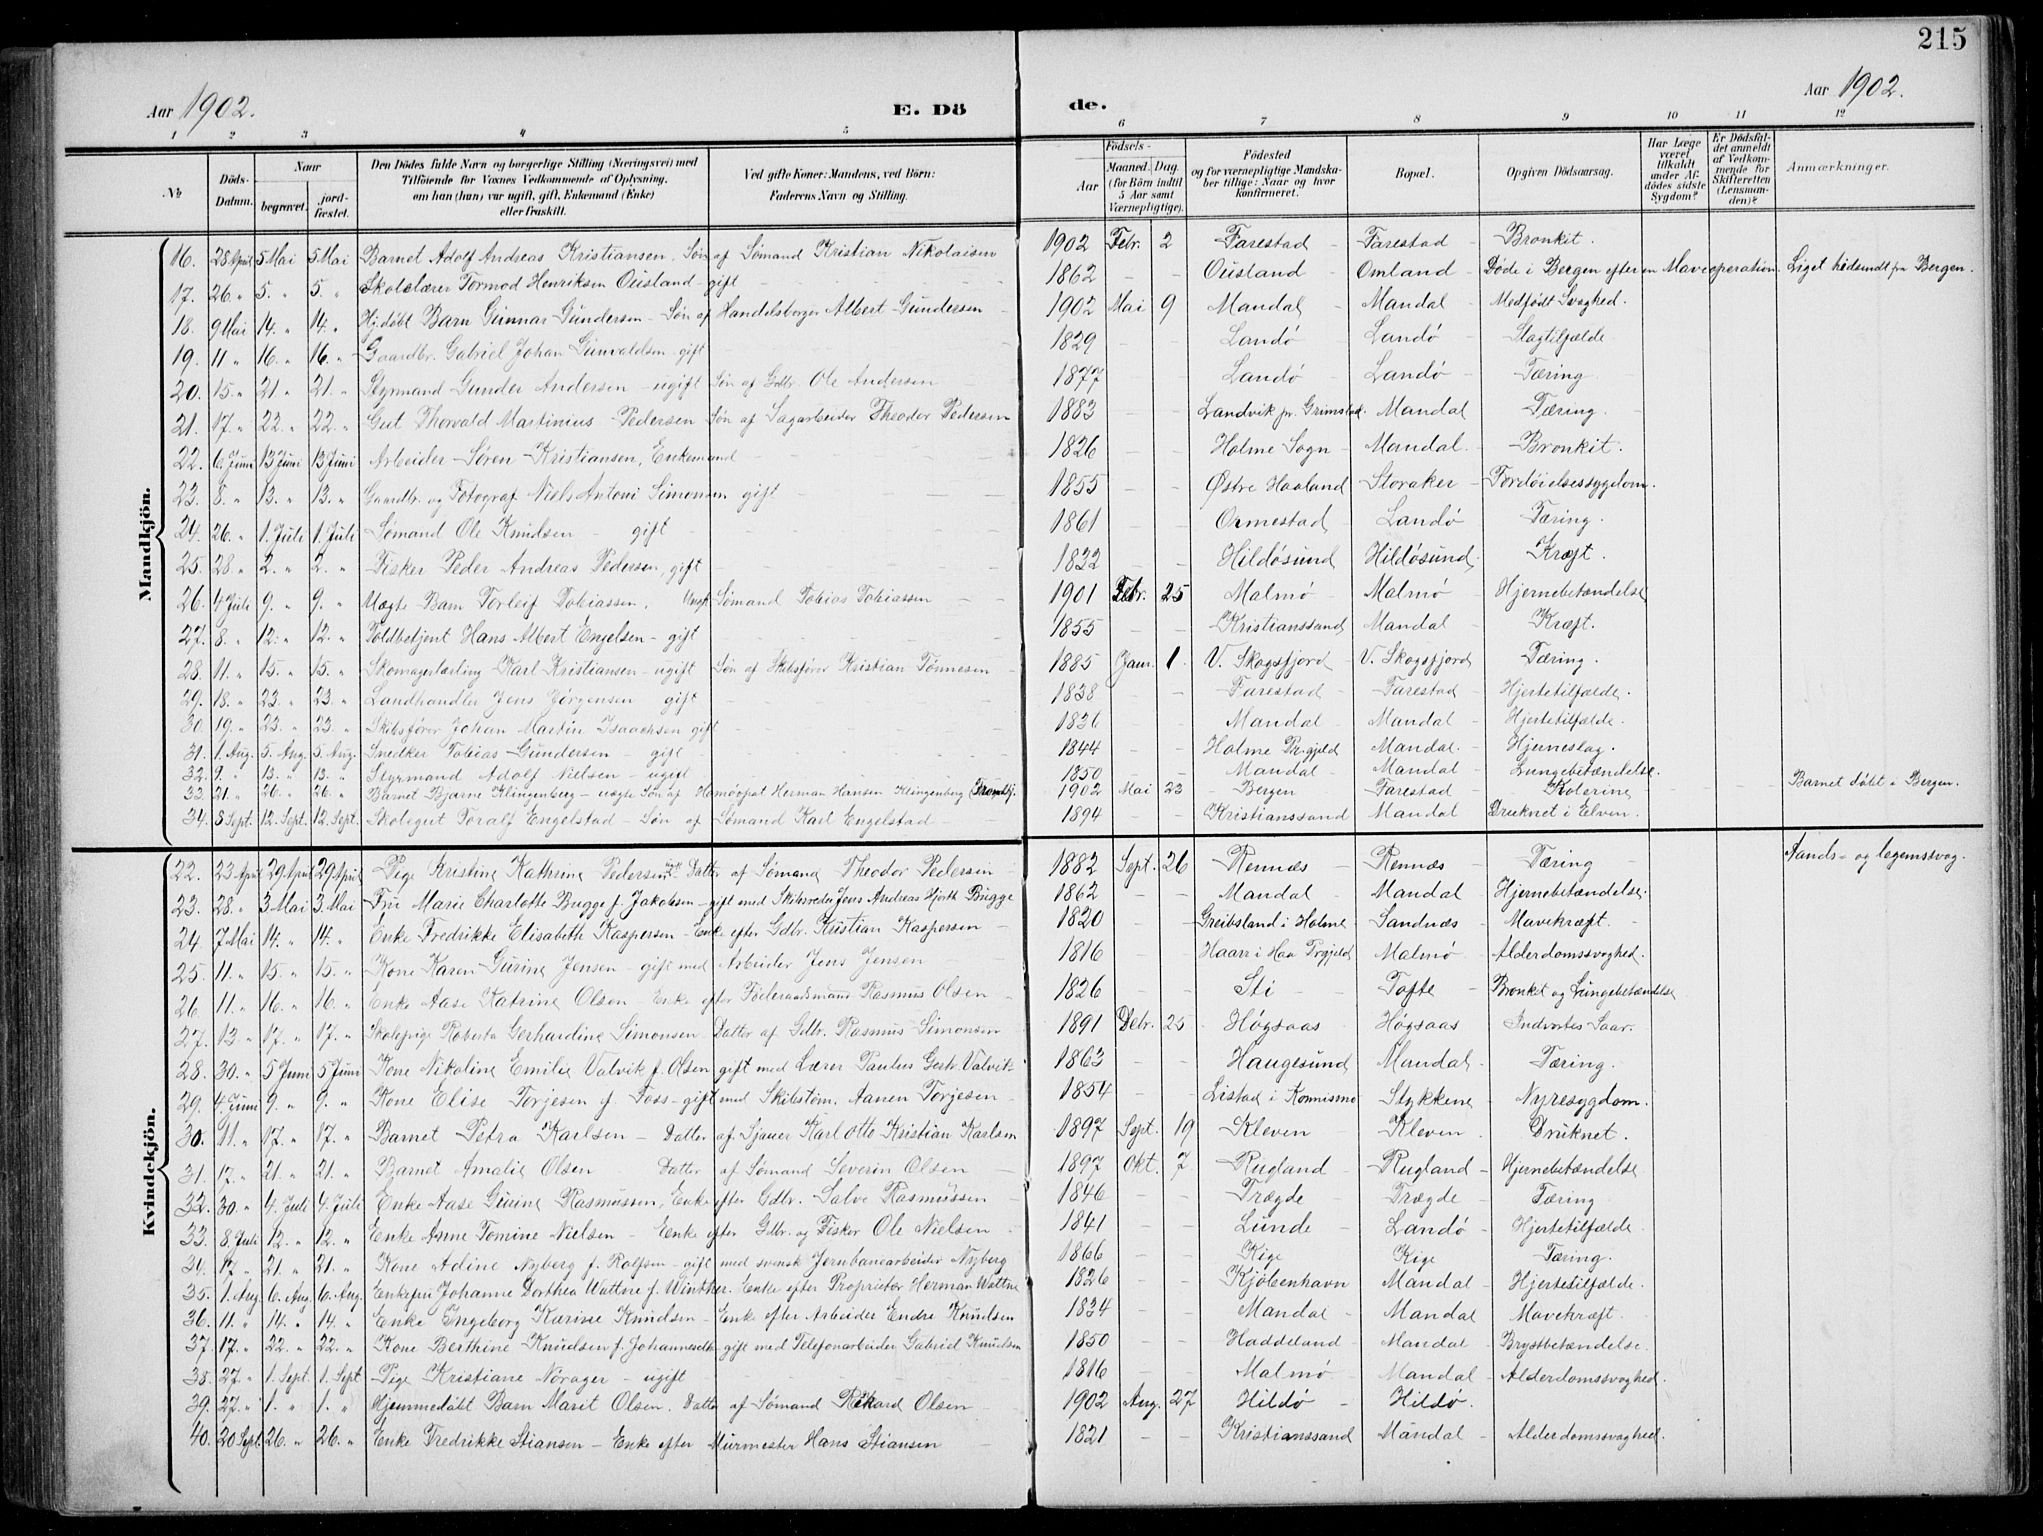 215
Aar 1902. E. Dö de. Aar 1902.
1 2 3 4 5 6 7 8 9 10 11 12
№ Döds-Datum. Naar begravet. jord-fæstet. Den Dödes fulde Navn og borgerlige Stilling (Næringsvei) med Tilföiende for Voxnes Vedkommende af Oplysning, om han (hun) var ugift, gift, Enkemand (Enke) eller fraskilt. Ved gifte Koner: Mandens, ved Börn: Faderens Navn og Stilling. Födsels- Aar Maaned. Dag. (for Börn indtil 5 Aar samt Værnepligtige). Födested og for værnepligtige Mandskaber tillige: Naar og hvor konfirmeret. Bopæl. Opgiven Dödsaarsag. Har Læge været tilkaldt under Afdödes sidste Sygdom? Er Dödsfaldet anmeldt af Vedkommende for Skifteretten (Lensmanden)? Anmærkninger.
Mandkjön.
16. 28 April 5 Mai 5 Mai Barnet Adolf Andreas Kristiansen, Søn af Sømand Kristian Nikolaisen 1902 Febr. 2 Farestad Farestad Bronkit.
17. 26. " 5. " 5. " Skolelærer Tormod Henriksen Ousland gift 1862 Ousland Omland Døde i Bergen efter en Maveoperation. Liget hidsendt fra Bergen.
18. 9 Mai 14. " 14. " Hj.døbt Barn Gunnar Gundersen - Søn af Handelsborger Albert Gundersen 1902 Mai 9 Mandal Mandal Medfødt Svaghed.
19. 11 " 16. " 16. " Gaardbr. Gabriel Johan Gunvaldsen - gift 1829 Landø Landø Slagtilfælde.
20. 15. " 21 " 21. " Styrmand Gunder Andersen - ugift Søn af Gdbr. Ole Andersen 1877 Landø Landø Tæring.
21. 17. " 22. " 22. " Gut Thorvald Martinius Pedersen Søn af Sagarbeider Theodor Pedersen 1883 Landvik pr. Grimstad. Mandal Tæring.
22. 6. Juni 13 Juni 13 Juni Arbeider Søren Kristiansen, Enkemand 1826 Holme Sogn Mandal. Bronkit.
23. 8. " 13. " 13. " Gaardbr. og Fotograf Niels Antoni Simonsen gift 1855 Østre Haaland Storaker Fordøielsessygdom.
24. 26. " 1. Juli 1. Juli Sømand Ole Knudsen gift 1861 Ormestad Landø Tæring.
25. 28. " 2. " 2. " Fisker Peder Andreas Pedersen, gift 1832 Hildøsund Hildøsund. Kræft.
26. 4 Juli 9. " 9. " Uægte Barn Torleif Tobiassen. Ungk. Sømand Tobias Tobiassen 1901 Febr. 25 Malmø Malmø Hjernebetændelse
27. 8. " 12. " 12. " Toldbetjent Hans Albert Engelsen - gift 1855 Kristianssand Mandal Kræft.
28. 11. " 15. " 15. " Skomagerlærling Karl Kristiansen - ugift Søn af Skibsfører Kristian Tønnesen 1885 Janr. 1. V. Skogsfjord V. Skogsfjord Tæring.
29. 18. " 23. " 23. " Landhandler Jens Jørgensen gift 1838 Farestad Farestad Hjertetilfælde.
30. 19. " 23. " 23. " Skibsfører Johan Martin Isaachsen gift 1831 Mandal Mandal Hjertetilfælde.
31. 1. Aug. 5. Aug. 5 Aug. Snedker Tobias Gundersen - gift 1844 Holme Pr.gjeld Mandal. Hjerneslag.
32. 9. " 13. " 13. " Styrmand Adolf Nielsen - ugift 1850 Mandal Mandal Lungebetændelse.
33. 21. " 26. " 26. " Barnet Bjarne Klingenberg - uægte Søn af Homøopat Herman Hansen Klingenberg (Trondhj. 1902 Mai 23 Bergen Farestad Kolerine Barnet døbt i Bergen.
34. 8 Sept. 12. Sept. 12. Sept. Skolegut Toralf Engelstad - Søn af Sømand Karl Engelstad 1894 Kristianssand Mandal Druknet i Elven.
Kvindekjön.
22. 23 April 29 April 29 April Pige Kristine Kathrine Pedersen Datter af Sømand Theodor Pedersen 1882 Sept. 26 Rennæs Rennæs Tæring Aands- og legemssvag.
23. 28. " 3 Mai 3. Mai Fru Marie Charlotte Bugge f. Jakobsen - gift med Skibsreder Jens Andreas Hjorth Bugge 1862 Mandal Mandal Hjernebetændelse.
24. 7 Mai 14. " 14. " Enke Fredrikke Elisabeth Kaspersen - Enke efter Gdbr. Kristian Kaspersen 1820 Greibsland i Holme Sandnæs Mavekræft.
25. 11. " 15. " 15. " Kone Karen Gurine Jensen - gift med Arbeider Jens Jensen 1816 Haarr i Haa Prgjeld Malmø Alderdomssvaghed.
26. 11. " 16. " 16. " Enke Aase Katrine Olsen - Enke efter Føderaadsmand Rasmus Olsen 1826 Sti Tofte Bronkit og Lungebetændelse
27. 13 " 17. " 17. " Skolepige Roberta Gerhardine Simonsen Datter af Gdbr. Rasmus Simonsen 1891 Debr. 25 Høgsaas Høgsaas Indvortes Saar.
28. 30. " 5 Juni 5 Juni Kone Nikoline Emilie Valvik f. Olsen gift med Lærer Paulus Gertr. Valvik 1863 Haugesund Mandal Tæring.
29. 4. Juni 9. " 9. " Kone Elise Torjesen f. Foss - gift med Skibstøm. Aanen Torjesen 1854 Listad i Konnismo Stykkene Nyresygdom.
30. 11. " 17. " 17. " Barnet Petra Karlsen - Datter af Sjauer Karl Otto Kristian Karlsen 1897 Sept. 19 Kleven Kleven Druknet.
31. 17. " 21 " 21. " Barnet Amalie Olsen Datter af Sømand Severin Olsen 1897 Okt. 7. Rugland Rugland Hjernebetændelse
32. 30. " 4. Juli 4. Juli Enke Aase Gurine Rasmussen, Enke efter Gdbr. Salve Rasmussen 1846 Trægde Trægde Tæring
33. 8. Juli 12. " 12. " Enke Anne Tomine Nielsen - Enke efter Gdbr. og Fisker Ole Nielsen 1841 Lunde Landø Hjertetilfælde.
34. 17. " 21. " 21. " Kone Adine Nyberg f. Rolfsen - gift med svensk Jernbanearbeider Nyberg 1866 Kige Kige Tæring.
35. 1. Aug. 6. Aug. 6. Aug. Enkefru Johanne Dorthea Wattne f. Winther. Enke efter Proprietær Herman Wattne 1826 Kjøbenhavn Mandal Hjertetilfælde.
36. 11. " 14. " 14. " Enke Ingeborg Karine Knudsen - Enke efter Arbeider Endre Knudsen 1834 Mandal Mandal Mavekræft.
37. 17. " 22. " 22. " Kone Berthine Knudsen f. Johannesdtr. gift med Telefonarbeider Gabriel Knudsen 1850 Haddeland Mandal Brystbetændelse.
38. 27. " 1. Sept. 1. Sept Pige Kristiane Nørager - ugift 1816 Malmø Mandal Alderdomssvaghed.
39. 27. " 1. " 1. " Hjemmedøbt Barn Marit Olsen. Datter af Sømand Rikard Olsen 1902 Aug. 27 Hildø Hildø.
40. 20 Sept. 26. " 26. " Enke Fredrikke Stiansen - Enke efter Murmester Hans Stiansen 1821 Kristianssand Mandal Alderdomssvaghed.